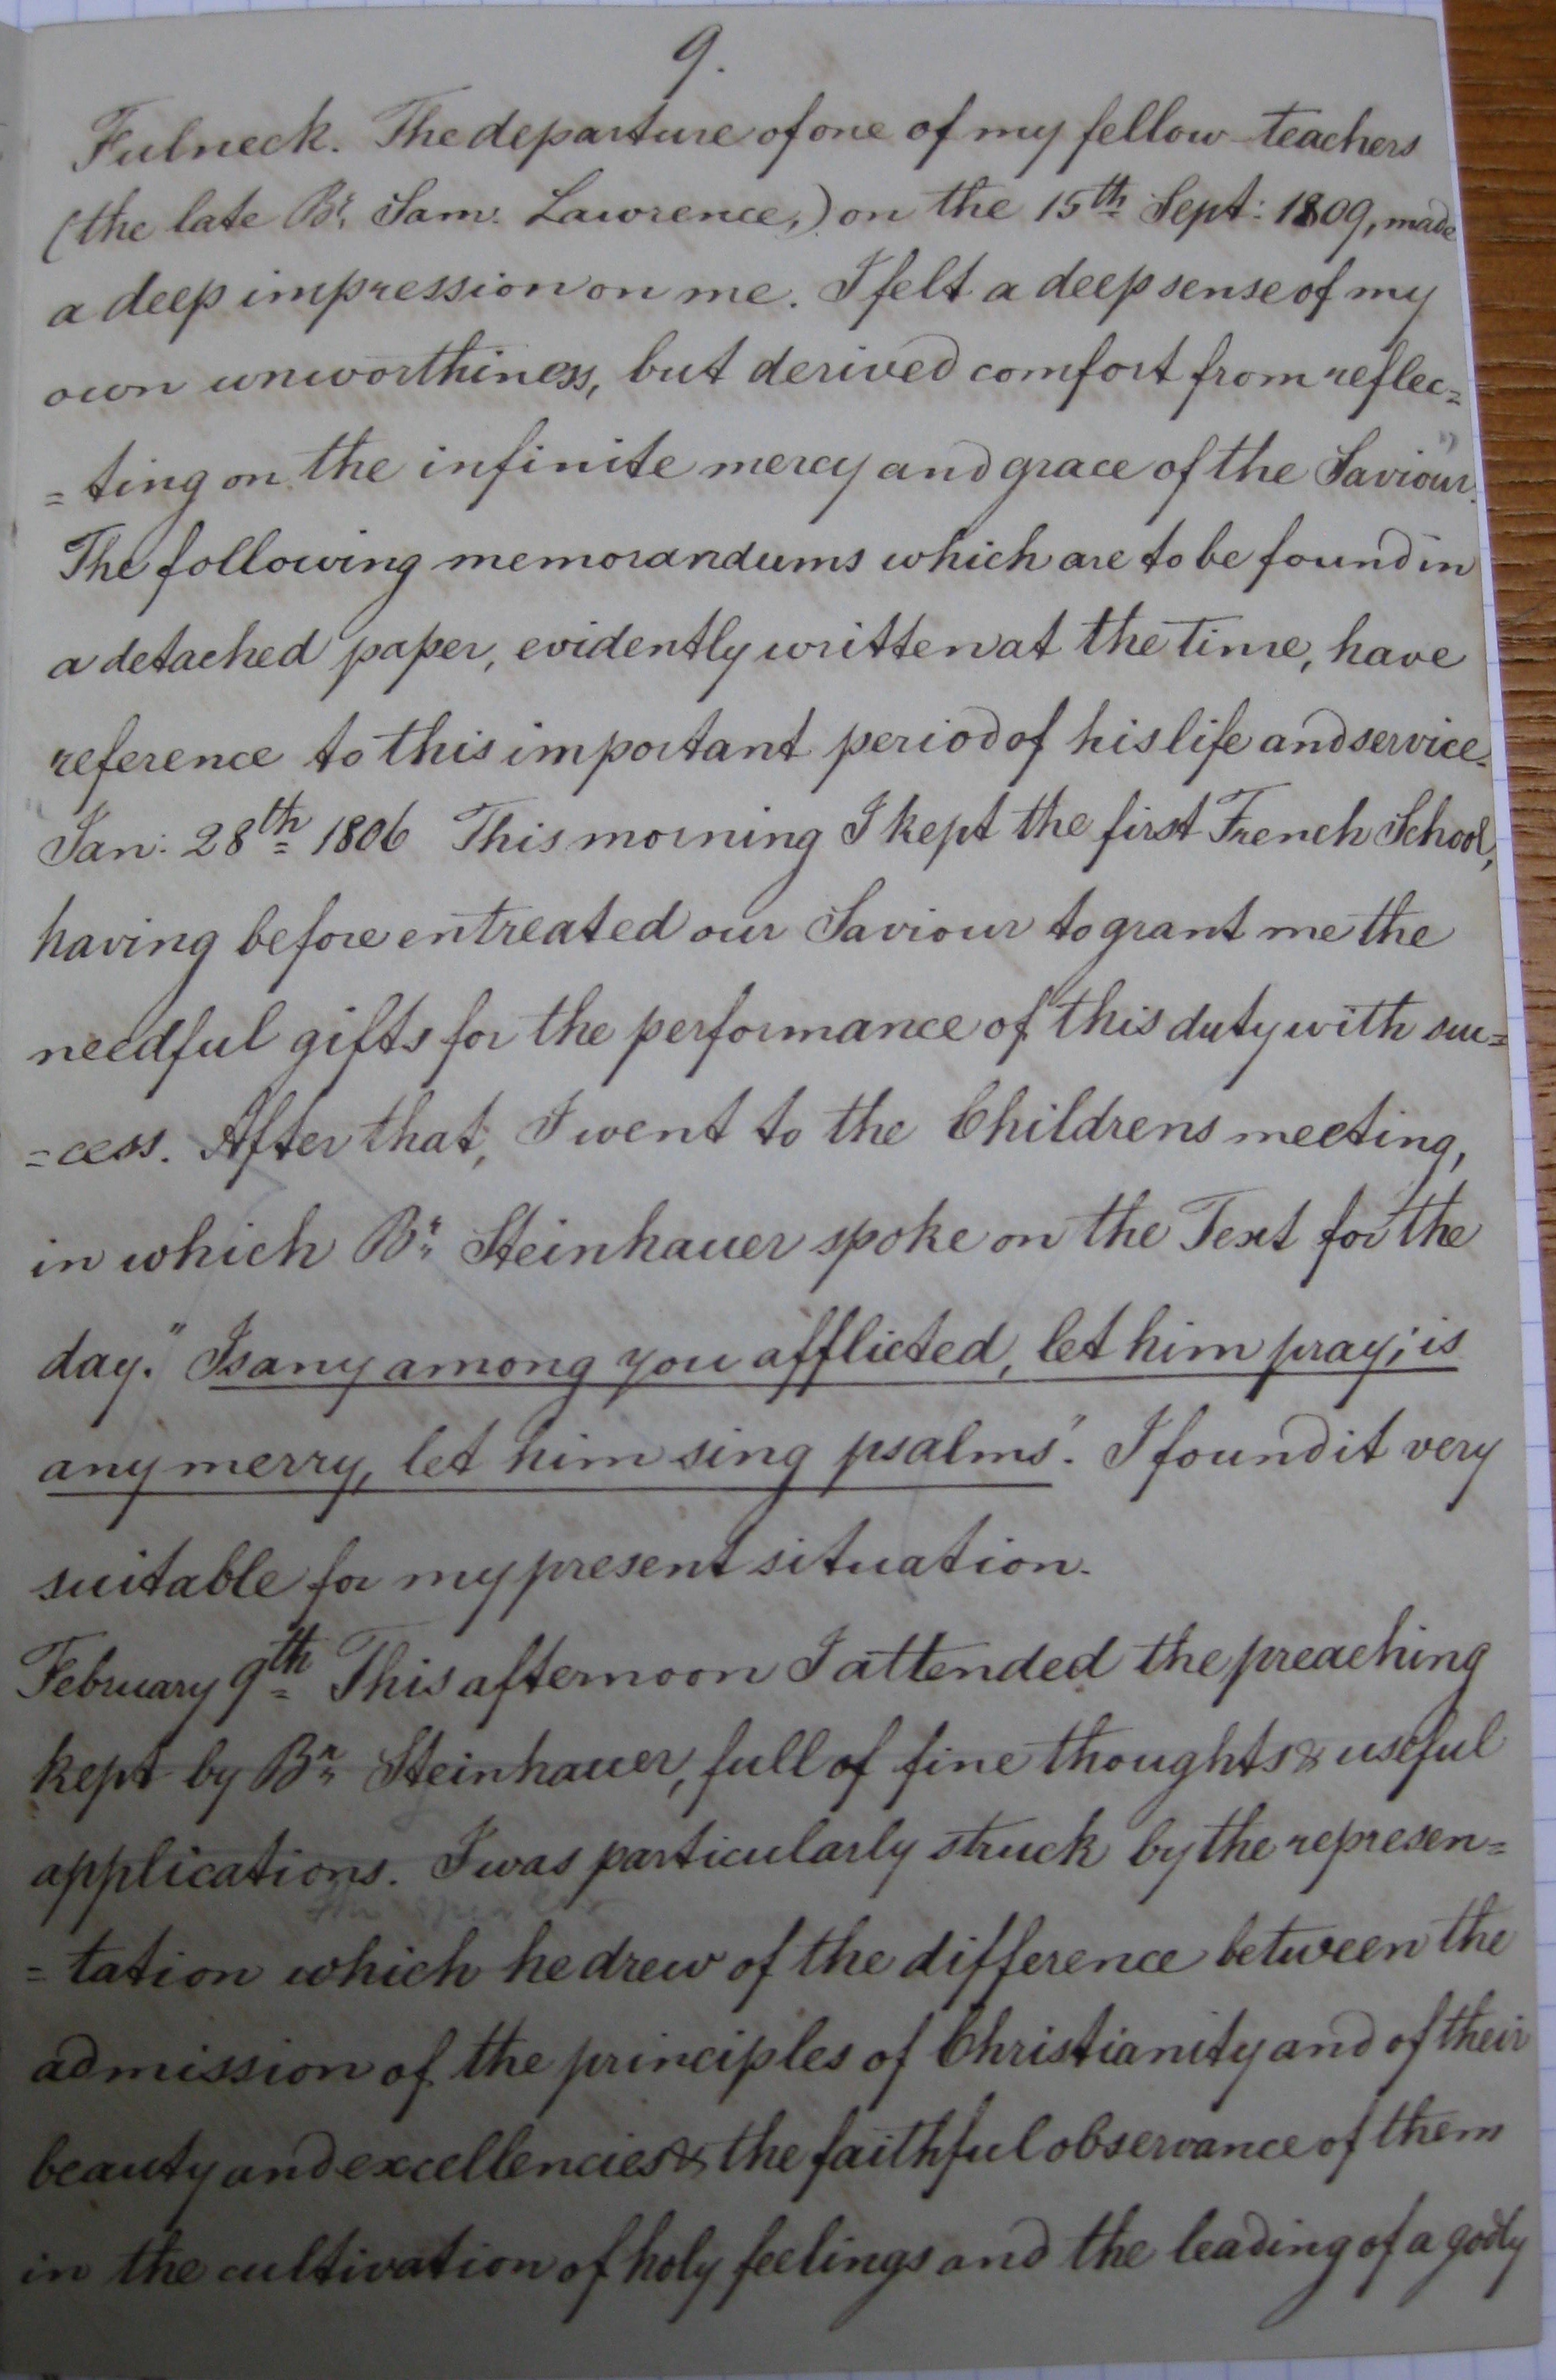 9.
Fulneck. The departure of one of my fellow-teachers
(the late Br. Sam: Lawrence,) on the 15th Sept: 1809, made
a deep impression on me. I felt a deep sense of my
own unworthiness, but derived comfort from reflec=
=ting on the infinite mercy and grace of the Saviour."
The following memorandums which are to be found in
a detached paper, evidently written at the time, have
reference to this important period of his life and service.
"Jan: 28th 1806 This morning I kept the first French School,
having before entreated our Saviour to grant me the
needful gifts for the performance of this duty with suc=
=cess. After that, I went to the Childrens meeting,
in which Br. Steinhauer spoke on the Text for the
day. "Is any among you afflicted, let him pray; is
any merry, let him sing psalms". I found it very
suitable for my present situation.
February 9th This afternoon I attended the preaching
kept by Br. Steinhauer, full of fine thoughts & useful
applications. I was particularly struck by the represen=
=tation which he drew of the difference between the
admission of the principles of Christianity and of their
beauty and excellencies & the faithful observance of them
in the cultivation of holy feelings and the leading of a godly